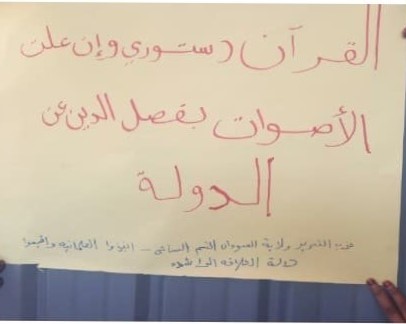 القرآن دستوري وإن علت
الأصوات بفصل الدين عن
الدولة
حزب التحرير ولاية السودان القسم النسائي - انبذوا العلمانية واقيموا
دولة الخلافة الراشده